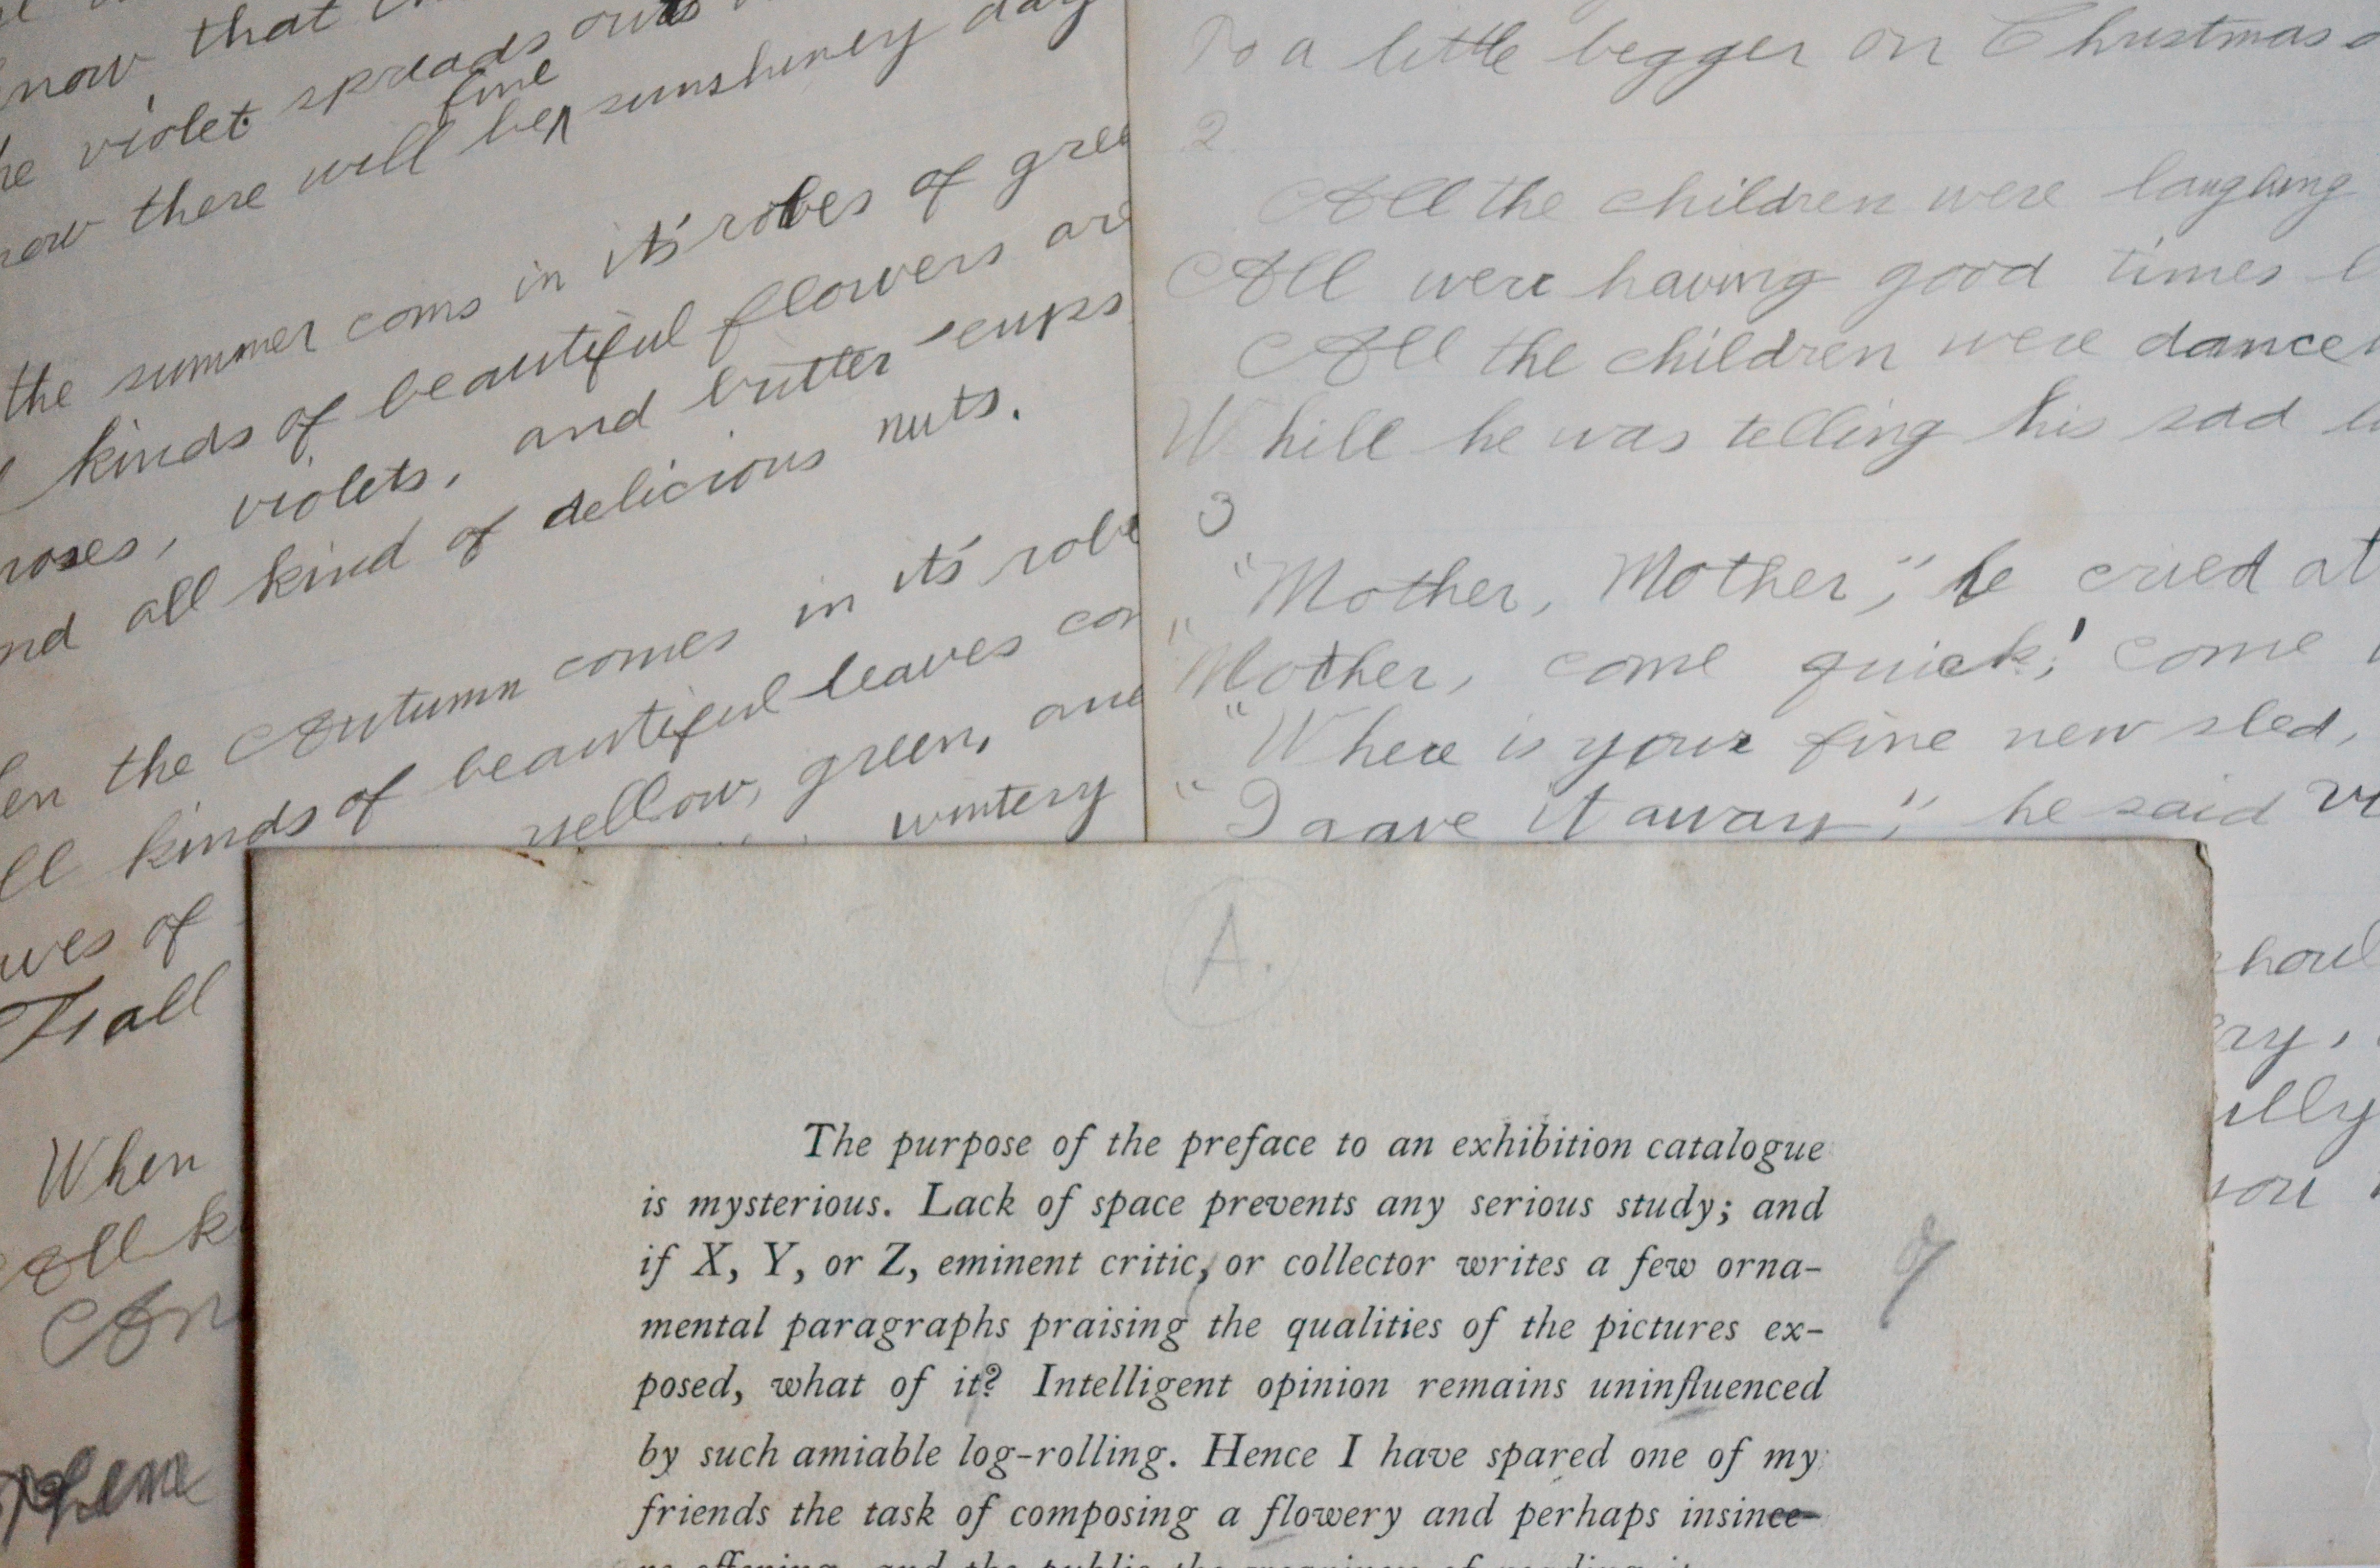 now, that
violet spreads out
fine
there will be ^ sunshiney day
the summer coms in it's robes of gree
kinds of beautiful flowers are
roses, violets, and butter cups
nd all kind of delicious nuts.
en the Autumn comes in it's robe
ll kinds of beautiful leaves con
yellow, green, and
wintery
ves of
When
All k
To a little begger on Christmas
2
All the children were laughing
All were having good times
All the children were dancei
Whill he was telling his sad
3
"Mother, Mother," he cried at
"Mother, come quick! come
"Where is your fine new sled,
"I gave it away," he said
houl
ry,
illy
you
A.
The purpose of the preface to an exhibition catalogue
is mysterious. Lack of space prevents any serious study; and
if X, Y, or Z, eminent critic, or collector writes a few orna-
mental paragraphs praising the qualities of the pictures ex-
posed, what of it? Intelligent opinion remains uninfluenced
by such amiable log-rolling. Hence I have spared one of my
friends the task of composing a flowery and perhaps insince-
re offering, and the public the weariness of reading it.